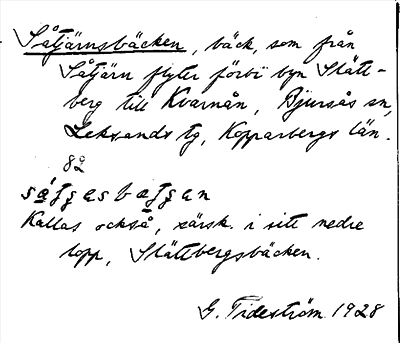 Såtjärnsbäcken, bäck, som från
Såtjärn flyter förbi byn Slätt-
berg till Kvarnån, Bjursås sn,
Leksands tg, Kopparbergs län.
Kallas också, särsk. i sitt nedre
lopp, Slättbergsbäcken.
G. Tideström 1928